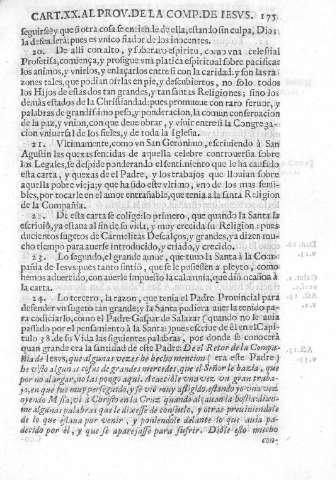 CART.XX. AL PROV. DE LA COMP. DE IESVS. 175
seguirse y que si otra cosa se entiende de ella, estando sin culpa, Dios
la defenderà: pues es vnico fiador de los inocentes.
20. De alli con alto, y soberano espiritu, como vna celestial
Profetisa, comiença, y prosigue vna platica espiritual sobre pacificar
los animos, y vnirlos, y enlaçarlos entre si con la caridad. y son las ra-
zones tales, que podian oirlas en pie, y descubiertos, no solo todos
los Hijos de estas dos tan grandes, y tan santas Religiones; sino los
demàs estados de la Christiandad: pues promueue con raro feruor, y
palabras de grandissimo peso, y ponderacion, la comun conseruacion
de la paz, y vnion, con que deue obrar, y viuir entre si la Congrega-
cion vniuersal de los fieles, y de toda la Iglesia.
21. Vltimamente, como vn San Geronimo, escriuiendo à San
Agustin las quexas sentidas de aquella celebre controuersia sobre
los Legales, se despide ponderando el sentimiento que le ha causado
esta carta, y quexas de el Padre, y los trabajos que llouian sobre
aquella pobre vieja; y que ha sido este vltimo, vno de los mas sensi-
bles, por tocarle en el amor entrañable, que tenia a la santa Religion
de la Compañia.
22. De esta carta se colige lo primero, que quando la Santa la
escriuiò, ya estaua al fin de su vida, y muy crecida su Religion, pues
ducientos sugetos de Carmelitas Descalços, y grandes, ya dizen mu-
cho tiempo para auerse introducido, y criado, y crecido.
23. Lo segundo, el grande amor, que tuuo la Santa à la Com-
pañia de Iesus: pues tanto sintiò, que se le pusiessen a pleyto, como
hemos aduertido, con auerle impuesto la calumnia, que diò ocasion à
la carta.
24. Lo tercero, la razon, que tenia el Padre Prouincial para
defender vn sugeto tan grande; y la Santa pudiera auerla tenido pa-
ra codiciarlo, como el Padre Gaspar de Salazar (quando no le auia
passado por el pensamiento à la Santa) pues escriue de èl en el Capi-
tulo 38. de su Vida las siguientes palabras, por donde se conocerà
quan grande era la santidad de este Padre: De el Retor de la Compa-
ñia de Iesus, que algunas vezes he hecho mencion (era este Padre)
he visto algunas cosas de grandes mercedes, que el Señor le hazia, que
por no alargar, no las pongo aqui. Acaeciòle vna vez vn gran traba-
jo, en que fue muy perseguido, y se viò muy afligido. estando yo vna vez
oyendo Missa, vi à Christo en la Cruz quando alçauan la hostia: dixo-
me algunas palabras que le dixesse de consuelo, y otras preuiniendole
de lo que estaua por venir, y poniendole delante lo que auia pa-
decido por èl, y que se aparejasse para sufrir. Diòle esto mucho
con-